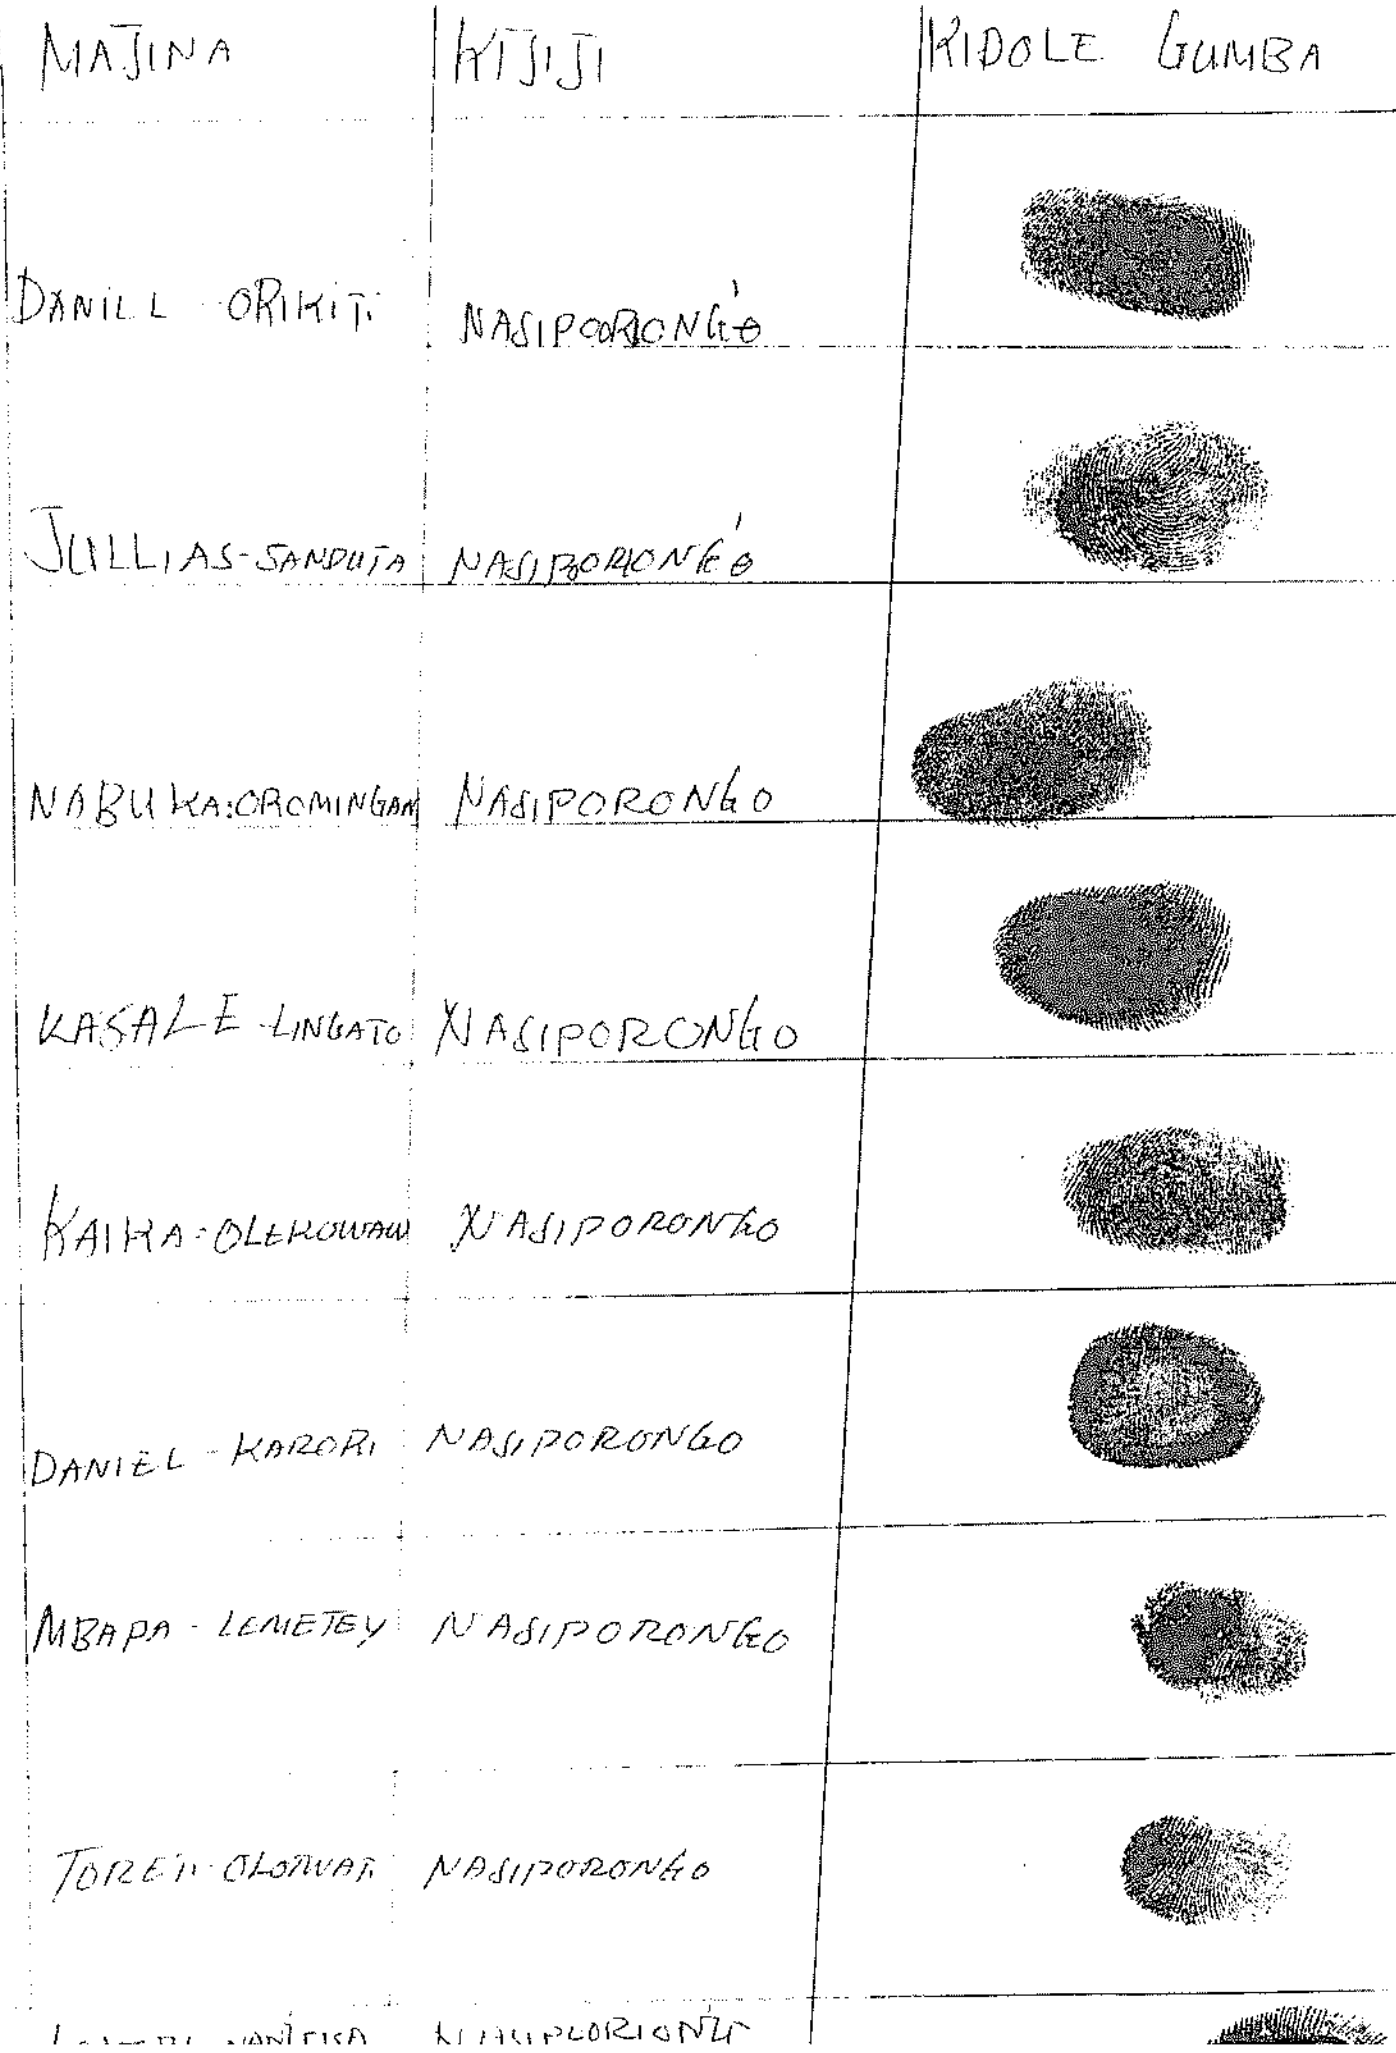 MAJINA KIJIJI KIDOLE GUMBA
DANILL - ORIKITI NASIPOORIONGO
JULLIAS - SANDUTA NASIPORIONGO
NABUKA: OROMINGAN NASIPORONGO
KASALE - LINGATO NASIPORONGO
KAIKA - OLEKOWAN NASIPORONGO
DANIEL - KARORI NASIPORONGO
MBAPA - LEMETEY NASIPORONGO
NASIPORONGO